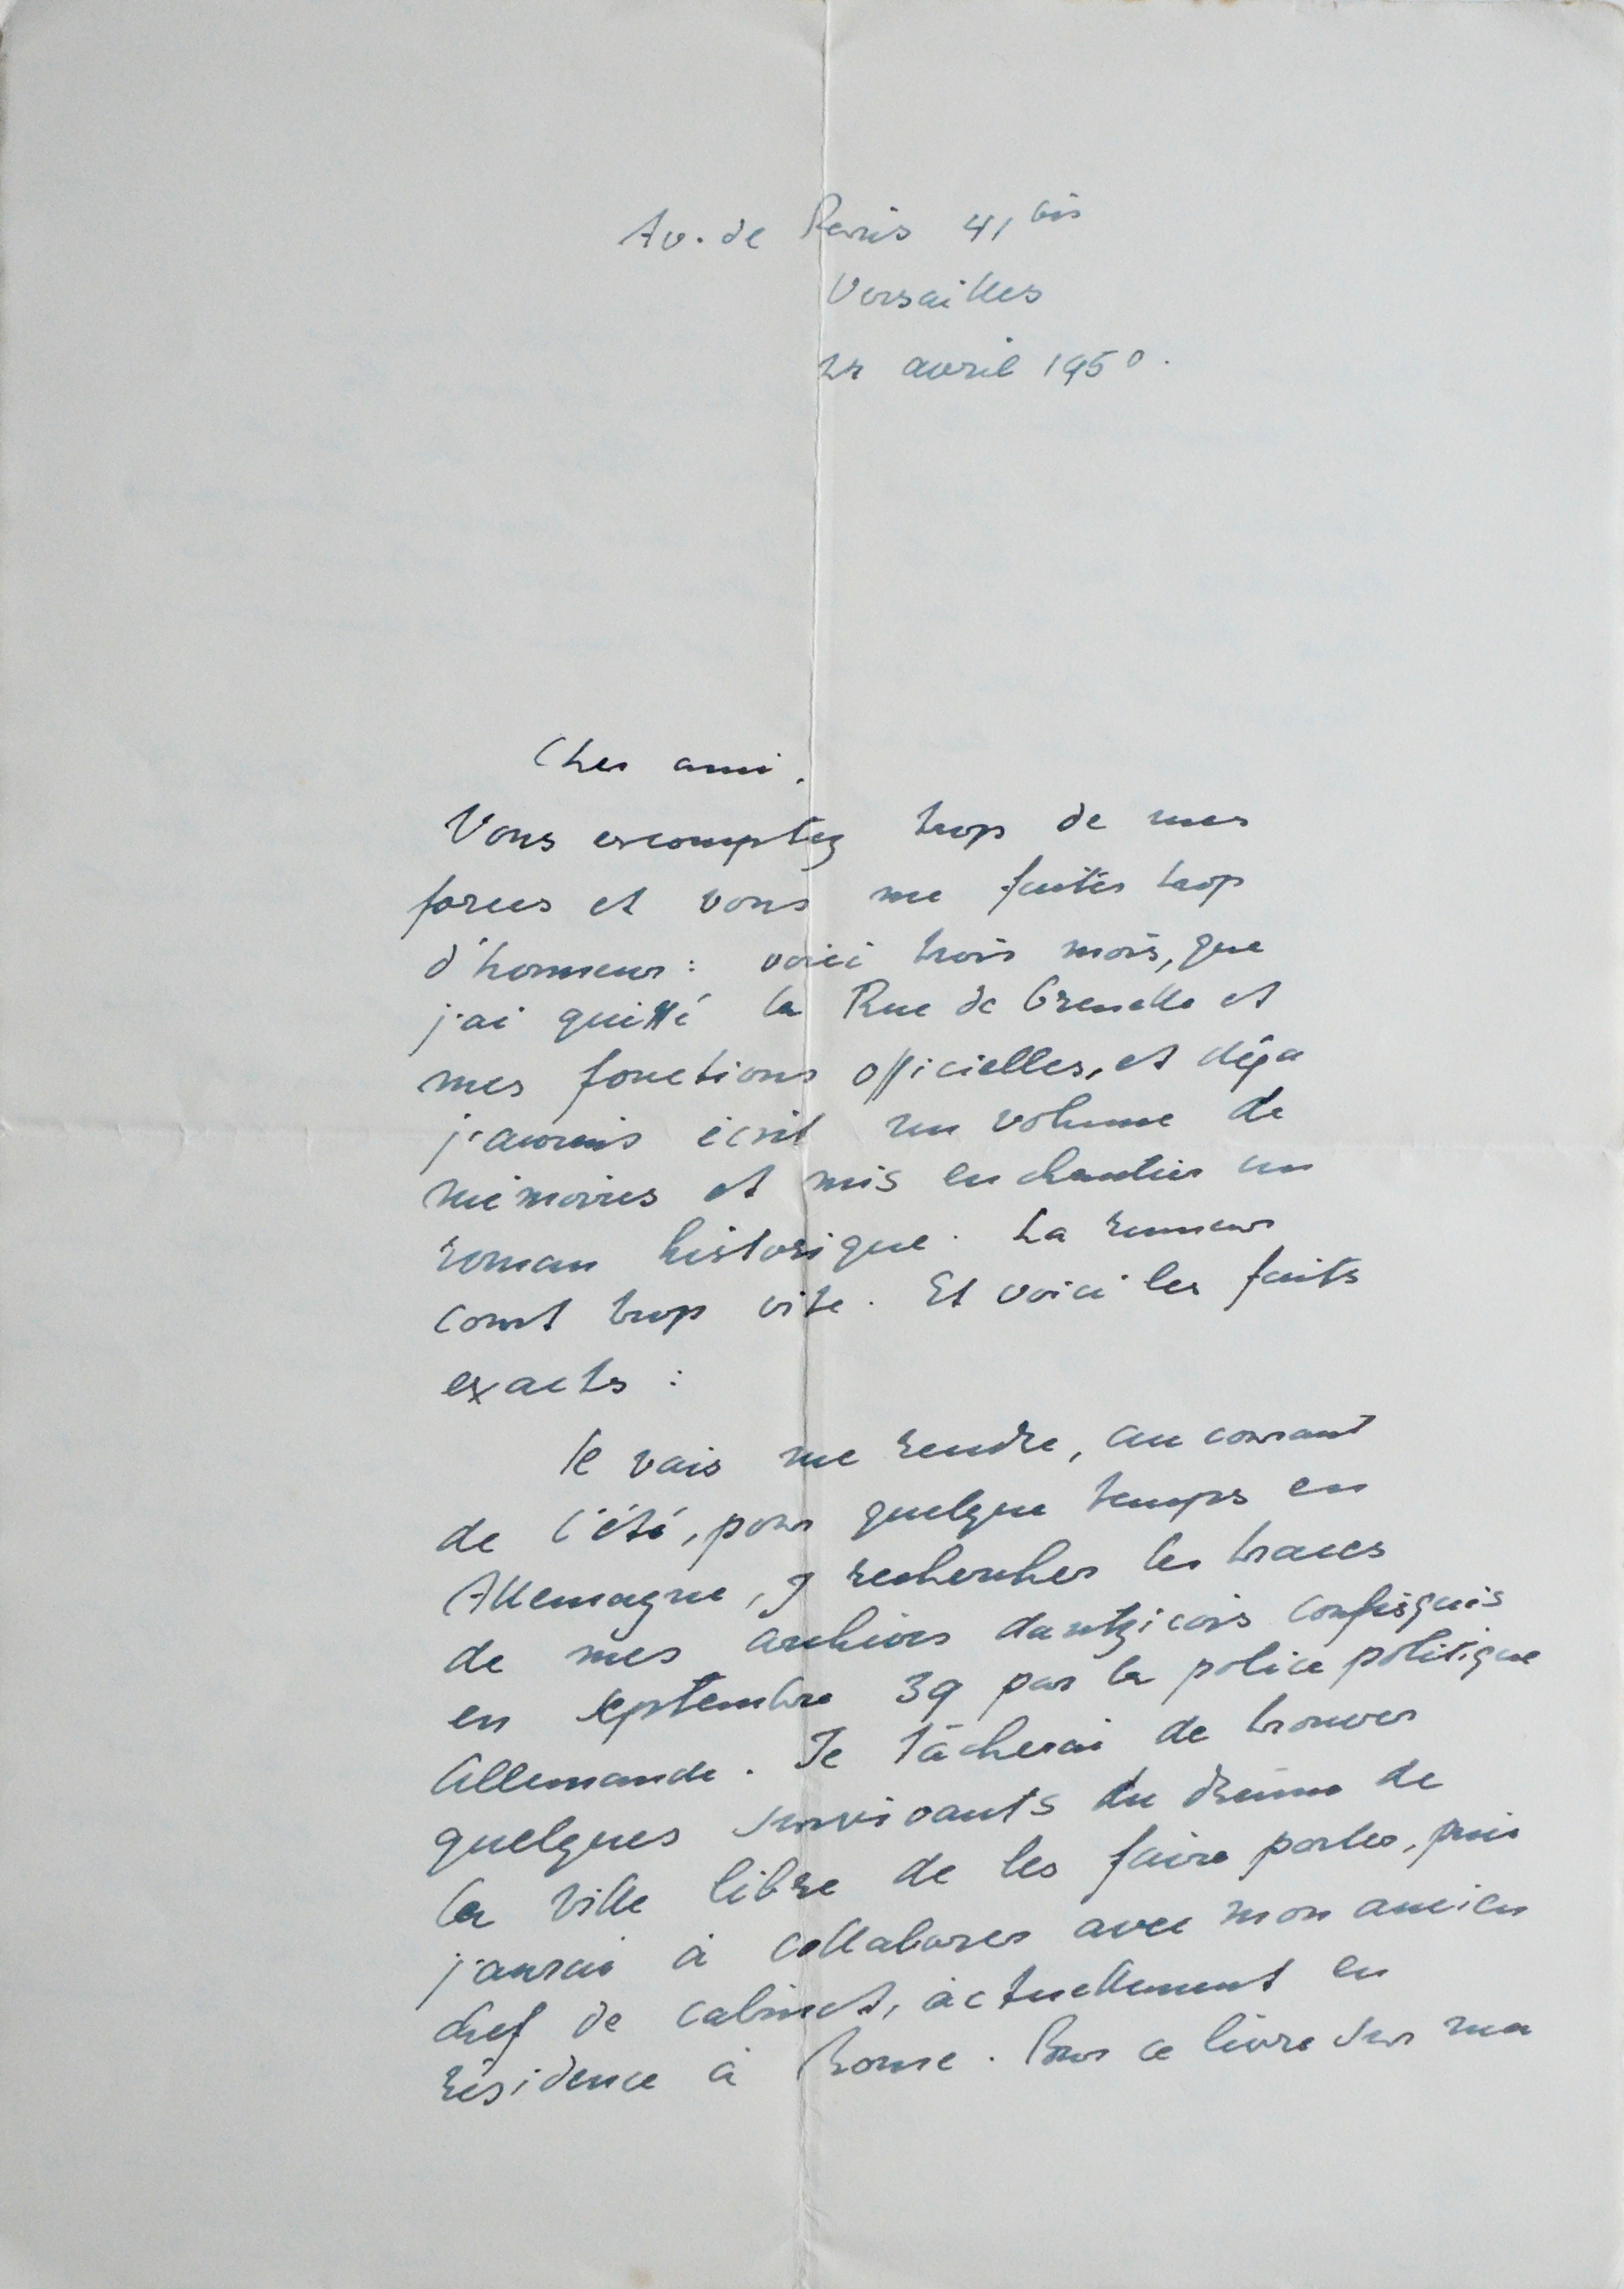 Av. de Paris 41 bis
Versailles
avril 1950.
Cher ami.
Vous escomptez trop de mes
forces et vous me faites trop
d'honneur : voici trois mois, que
j'ai quitté la Rue de Grenelle et
mes fonctions officielles, et déja
j'aurais écrit un volume de
mémoires et mis en chantier un
roman historique. La rumeur
court trop vite. Et voici les faits
exacts :
Je vais me rendre, au courant
de l'été, pour quelque temps en
Allemagne, y rechercher les traces
de mes archives dantzicois confisqués
en septembre 39 par la police politique
Allemande. Je tâcherai de trouver
quelques survivants du drame de
la Ville libre de les faire parler, puis
j'aurai à collaborer avec mon ancien
chef de cabinet, actuellement en
résidence à Rome. Pour ce livre sur ma